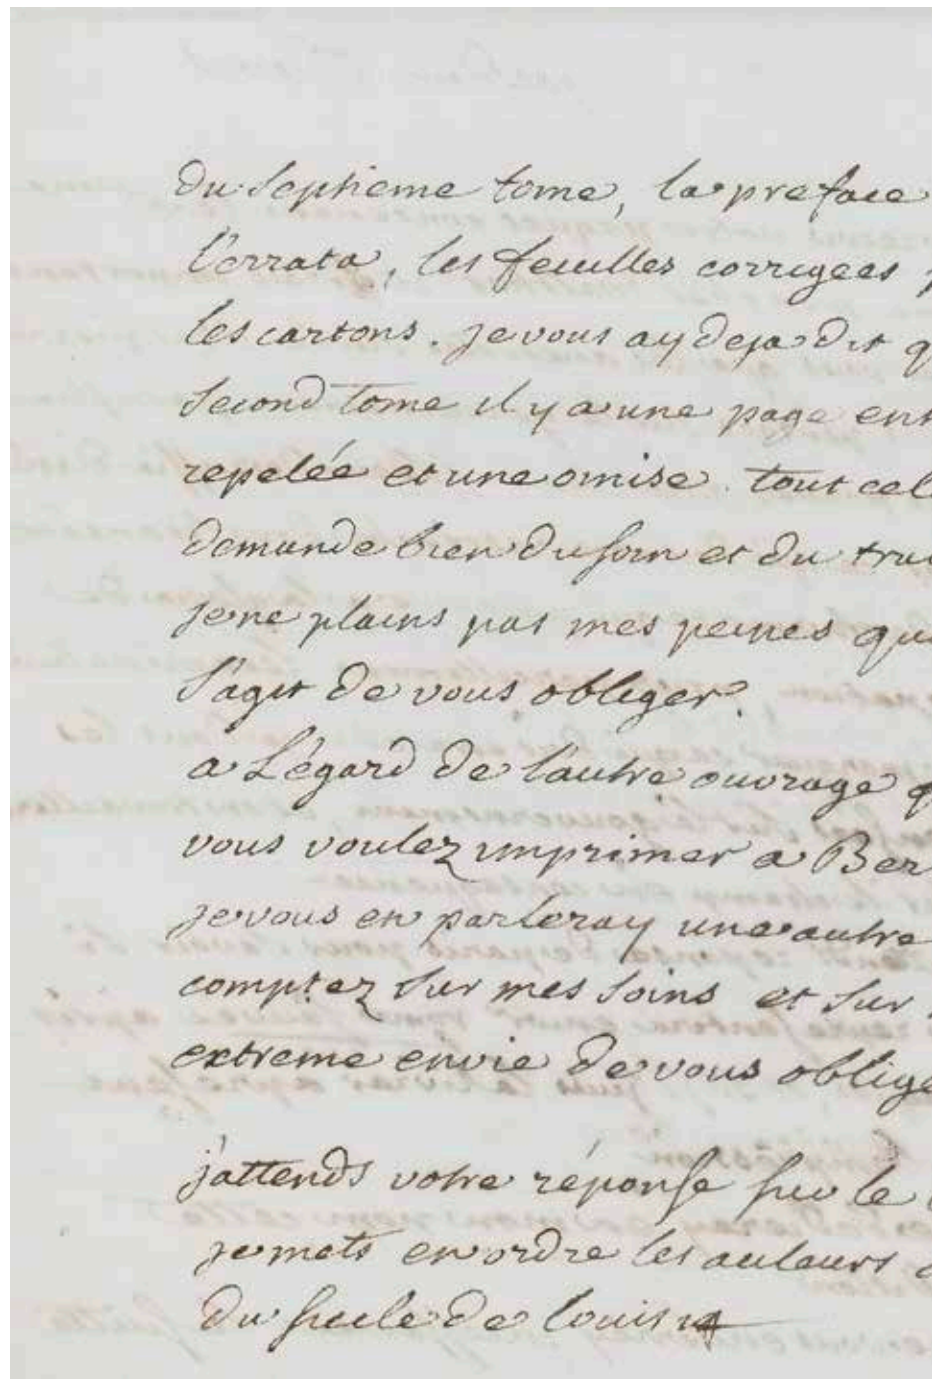 du septieme tome, la preface
l'errata, les feuilles corrigées
les cartons. je vous ay deja dit q
second tome il y a une page ent
repetée et une omise. tout cel
demande bien du soin et du tra
je ne plains pas mes peines qu
s'agit de vous obliger.
a L'égard de l'autre ouvrage q
vous voulez imprimer a Ber
je vous en parleray une autre
comptez sur mes soins et sur
extreme envie de vous oblige
j'attends votre réponse sur le
je mets en ordre les auteurs
du siecle de louis 14